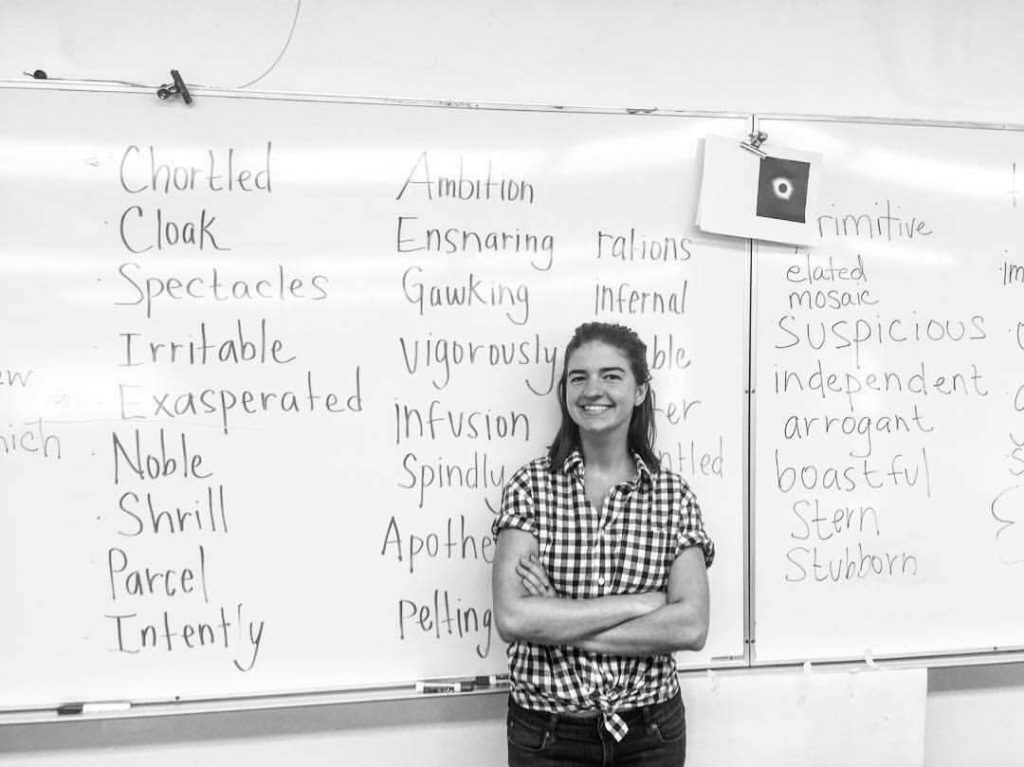 Chortled
Cloak
Spectacles
Irritable
Exasperated
Noble
Shrill
Parcel
Intently
Ambition
Ensnaring
Gawking
Vigorously
infusion
Spindly
Pelting
rations
infernal
elated
mosaic
suspicious
independent
arrogant
boastful
Stern
Stubborn